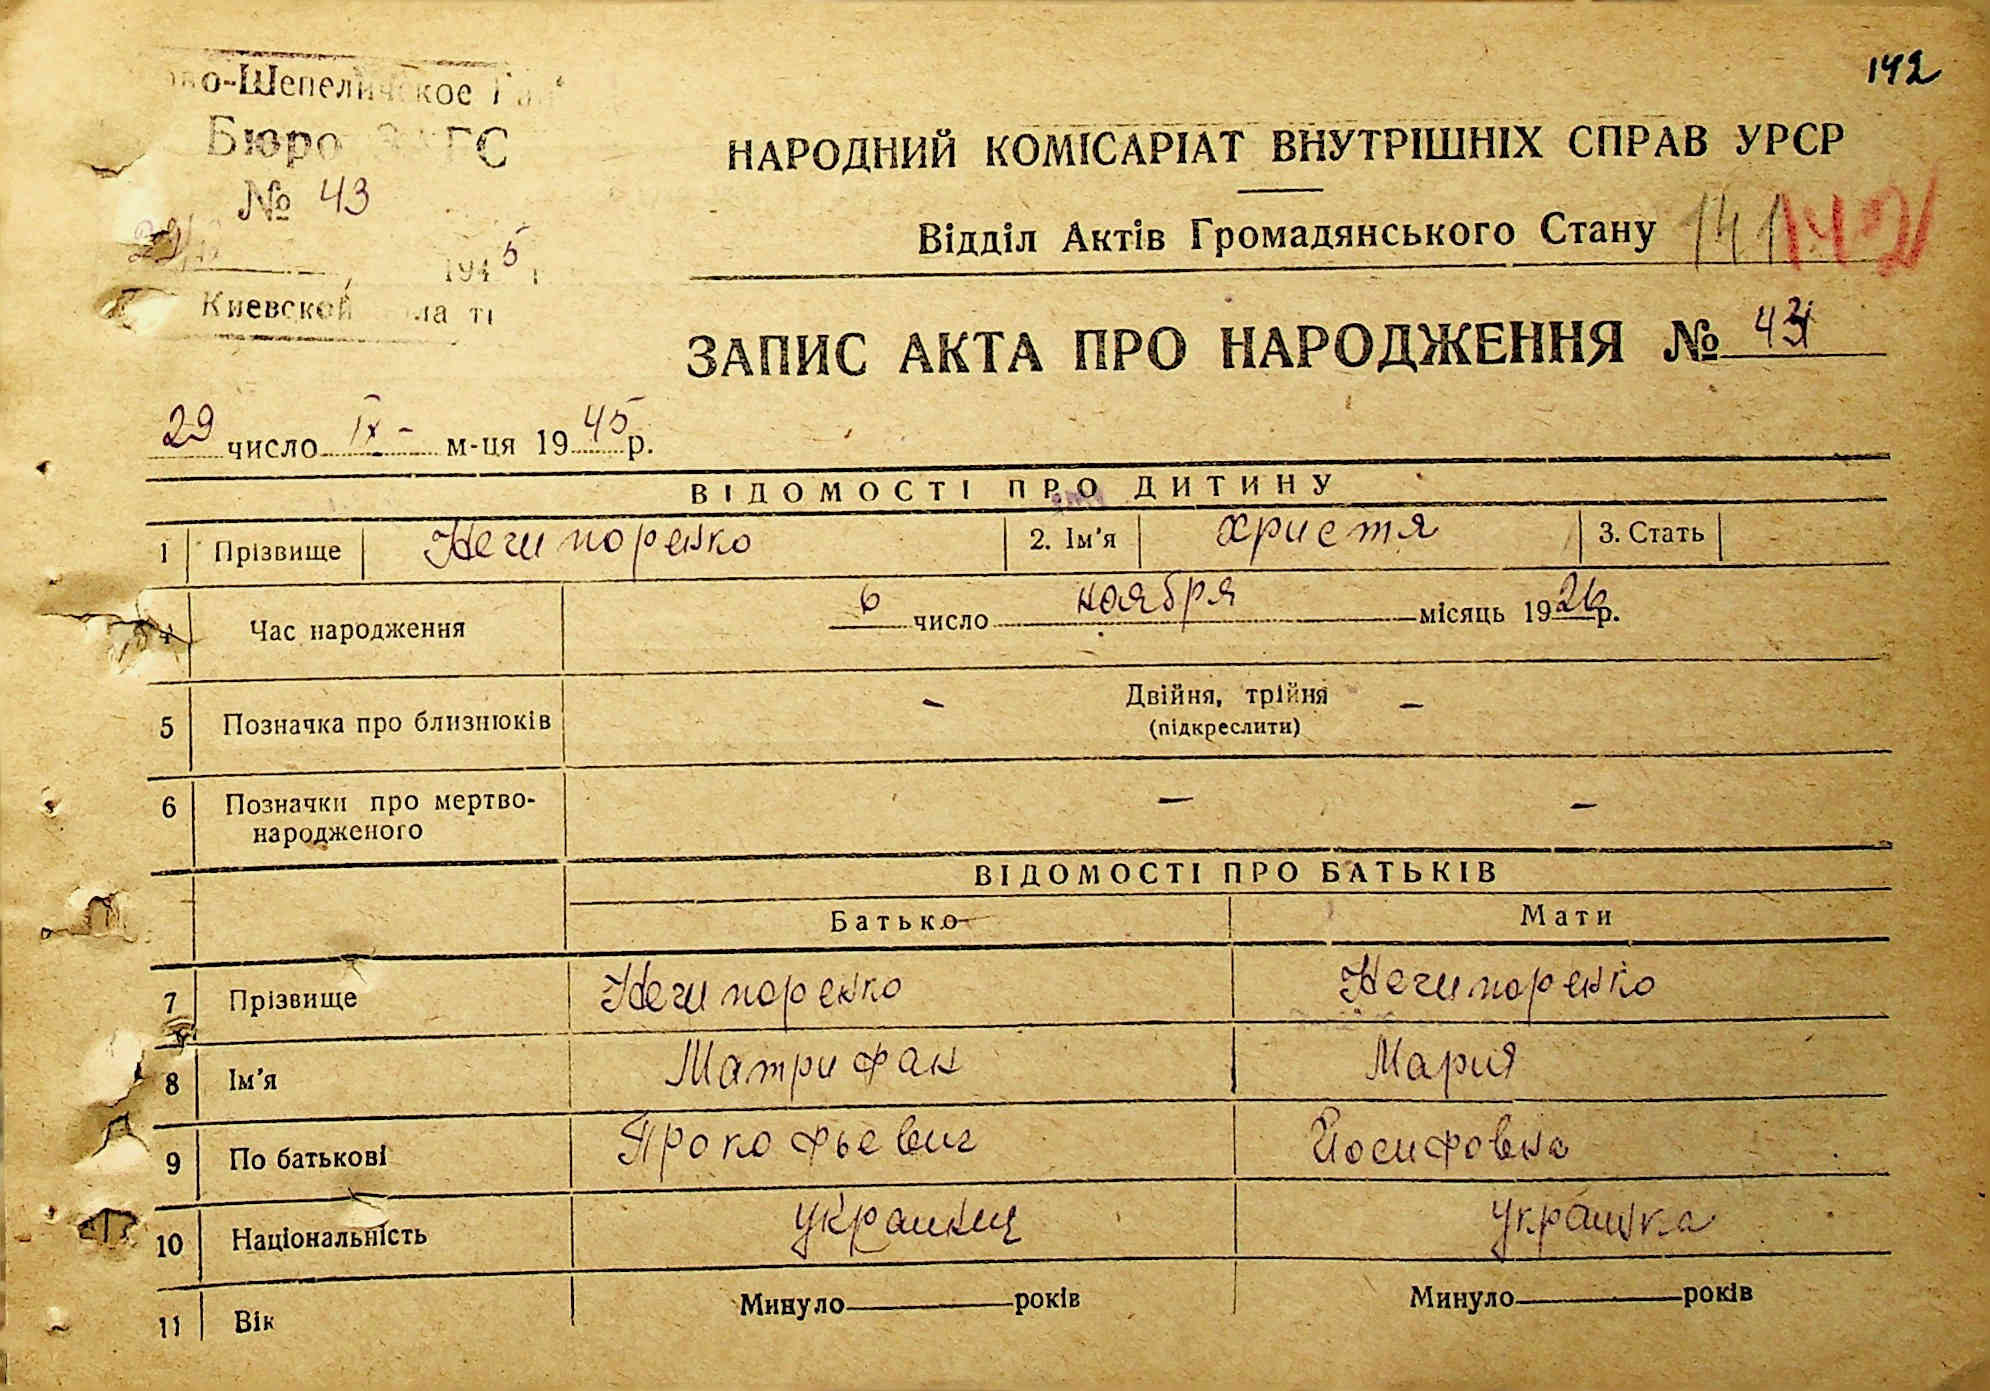 142
во-Шепеличское
Бюро ЗАГС
№ 43
29/IX 1945 г
Киевской области
НАРОДНИЙ КОМІСАРІАТ ВНУТРІШНІХ СПРАВ УРСР
Відділ Актів Громадянського Стану 141 142
ЗАПИС АКТА ПРО НАРОДЖЕННЯ № 43
29 число IX - м-ця 1945 р.
ВІДОМОСТІ ПРО ДИТИНУ
1 Прізвище Нечипоренко 2. Ім'я Христя 3. Стать
4 Час народження 6 число ноября місяць 1926 р.
5 Позначка про близнюків - Двійня, трійня -
(підкреслити)
6 Позначки про мертво- - -
народженого
ВІДОМОСТІ ПРО БАТЬКІВ
Батько Мати
7 Прізвище Нечипоренко Нечипоренко
8 Ім'я Матрифан Мария
9 По батькові Прокофьевич Йосифовна
10 Національність украинец украинка
11 Вік Минуло років Минуло років